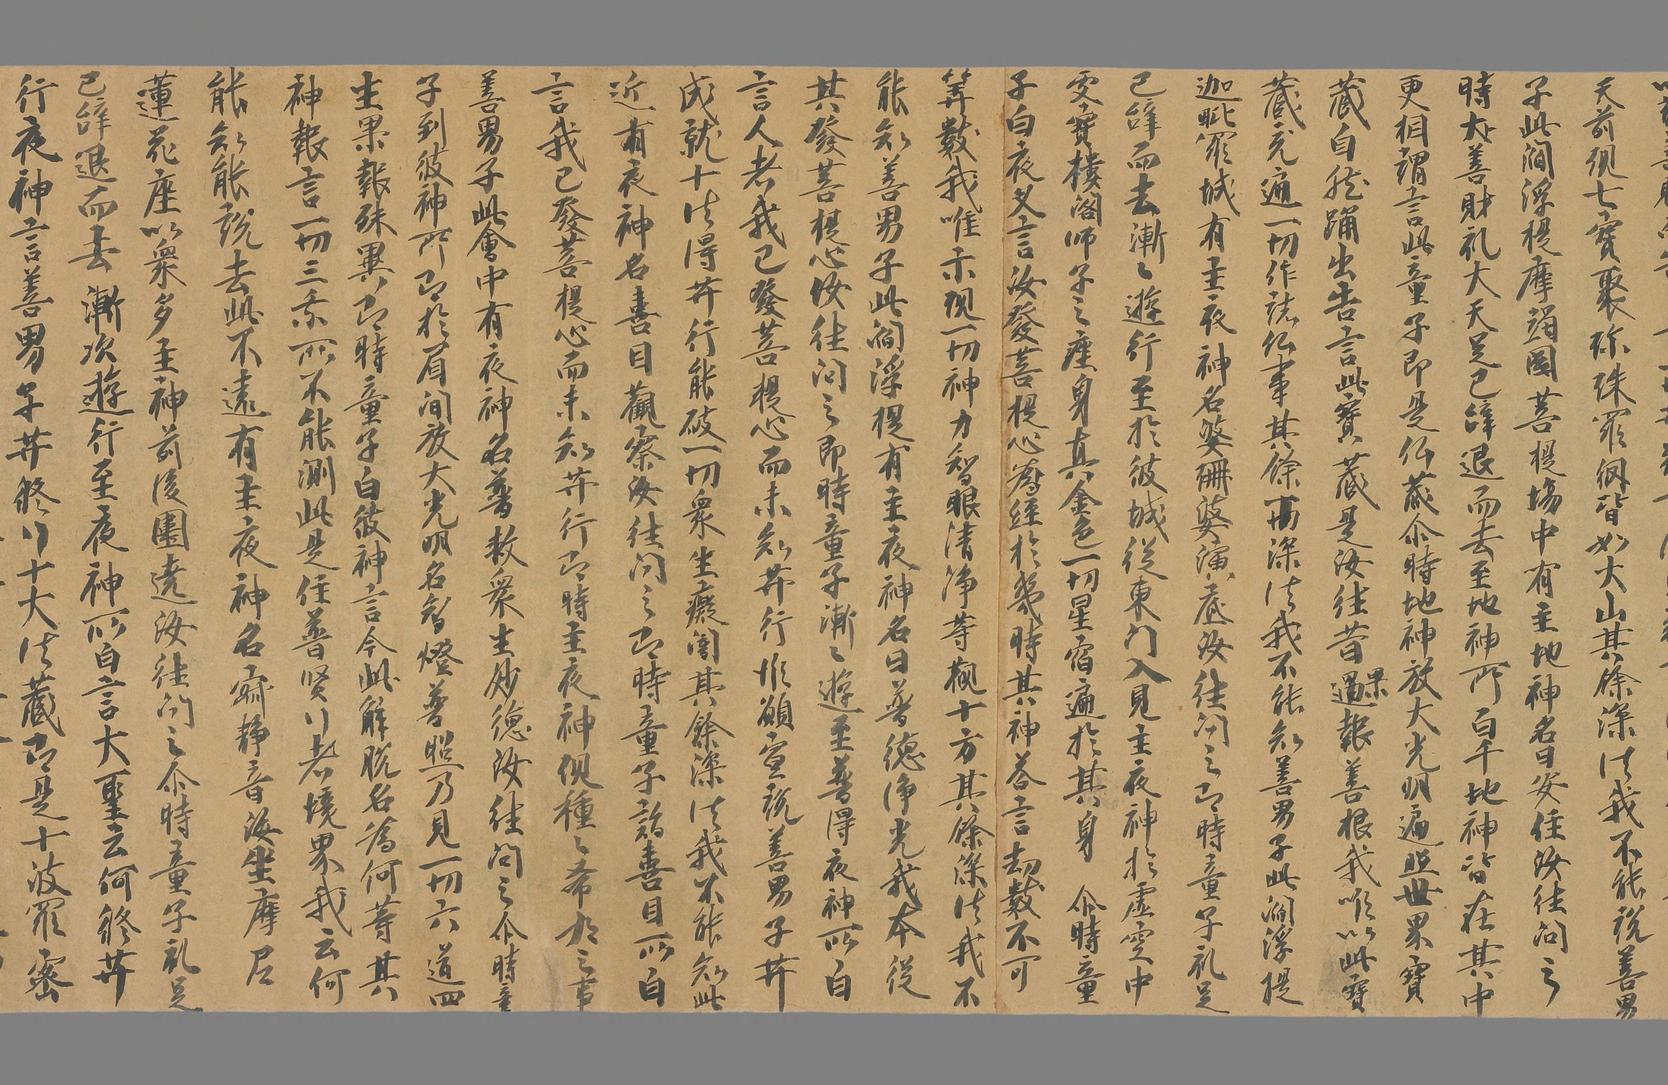 天前現七寶聚弥殊羅網皆如大山其餘深法我不能說善男
子此閻浮提摩竭國菩提場中有主地神名曰安住汝往問之
時大善財礼大天足已辞退而去至地神所百千地神皆在其中
更相謂言此童子即是仏藏尒時地神放大光明遍照世界寶
藏自然踊出告言此寶藏是汝往昔果報善根我唯以此寶
藏充遍一切作諸仏事其餘甚深法我不能知善男子此閻浮提
迦毗羅城有主夜神名婆珊婆演底汝往問之即時童子礼足
已辞而去漸〻遊行至於彼城從東門入見主夜神於虛空中
雯寶樓閣師子之座身真金色一切星宿遍於其身 尒時童
子白夜叉言汝發菩提心為經於幾時其神荅言劫數不可
筭數我唯示現一切神力智眼清淨等觀十方其餘深法我不
能知善男子此閻浮提有主夜神名曰普德淨光我本從
其發菩提心汝往問之即時童子漸〻遊至普得夜神所白
言人者我已發菩提心而未知菩行惟願宣說善男子菩
成就十法得菩行能破一切衆生癡闇其餘深法我不能知此
近有夜神名喜目觀察汝往問之即時童子詣喜目所白
言我已發菩提心而未知菩行即時主夜神現種〻希有之事
善男子此會中有夜神名普救衆生妙德汝往問之尒時童
子到彼神所即於眉間放大光明名智燈普照乃見一切六道四
生果報殊異即時童子白彼神言今此解脫名為何等其
神報言一切三乘所不能測此是住普賢行者境界我云何
能知能說去此不遠有主夜神名寂靜音海坐摩尼
蓮花座以衆多主神前後圍遶汝往問之尒時童子礼足
已辞退而去漸次遊行至夜神所白言大聖云何修菩
行夜神言善男子菩修行十大法藏即是十波羅蜜